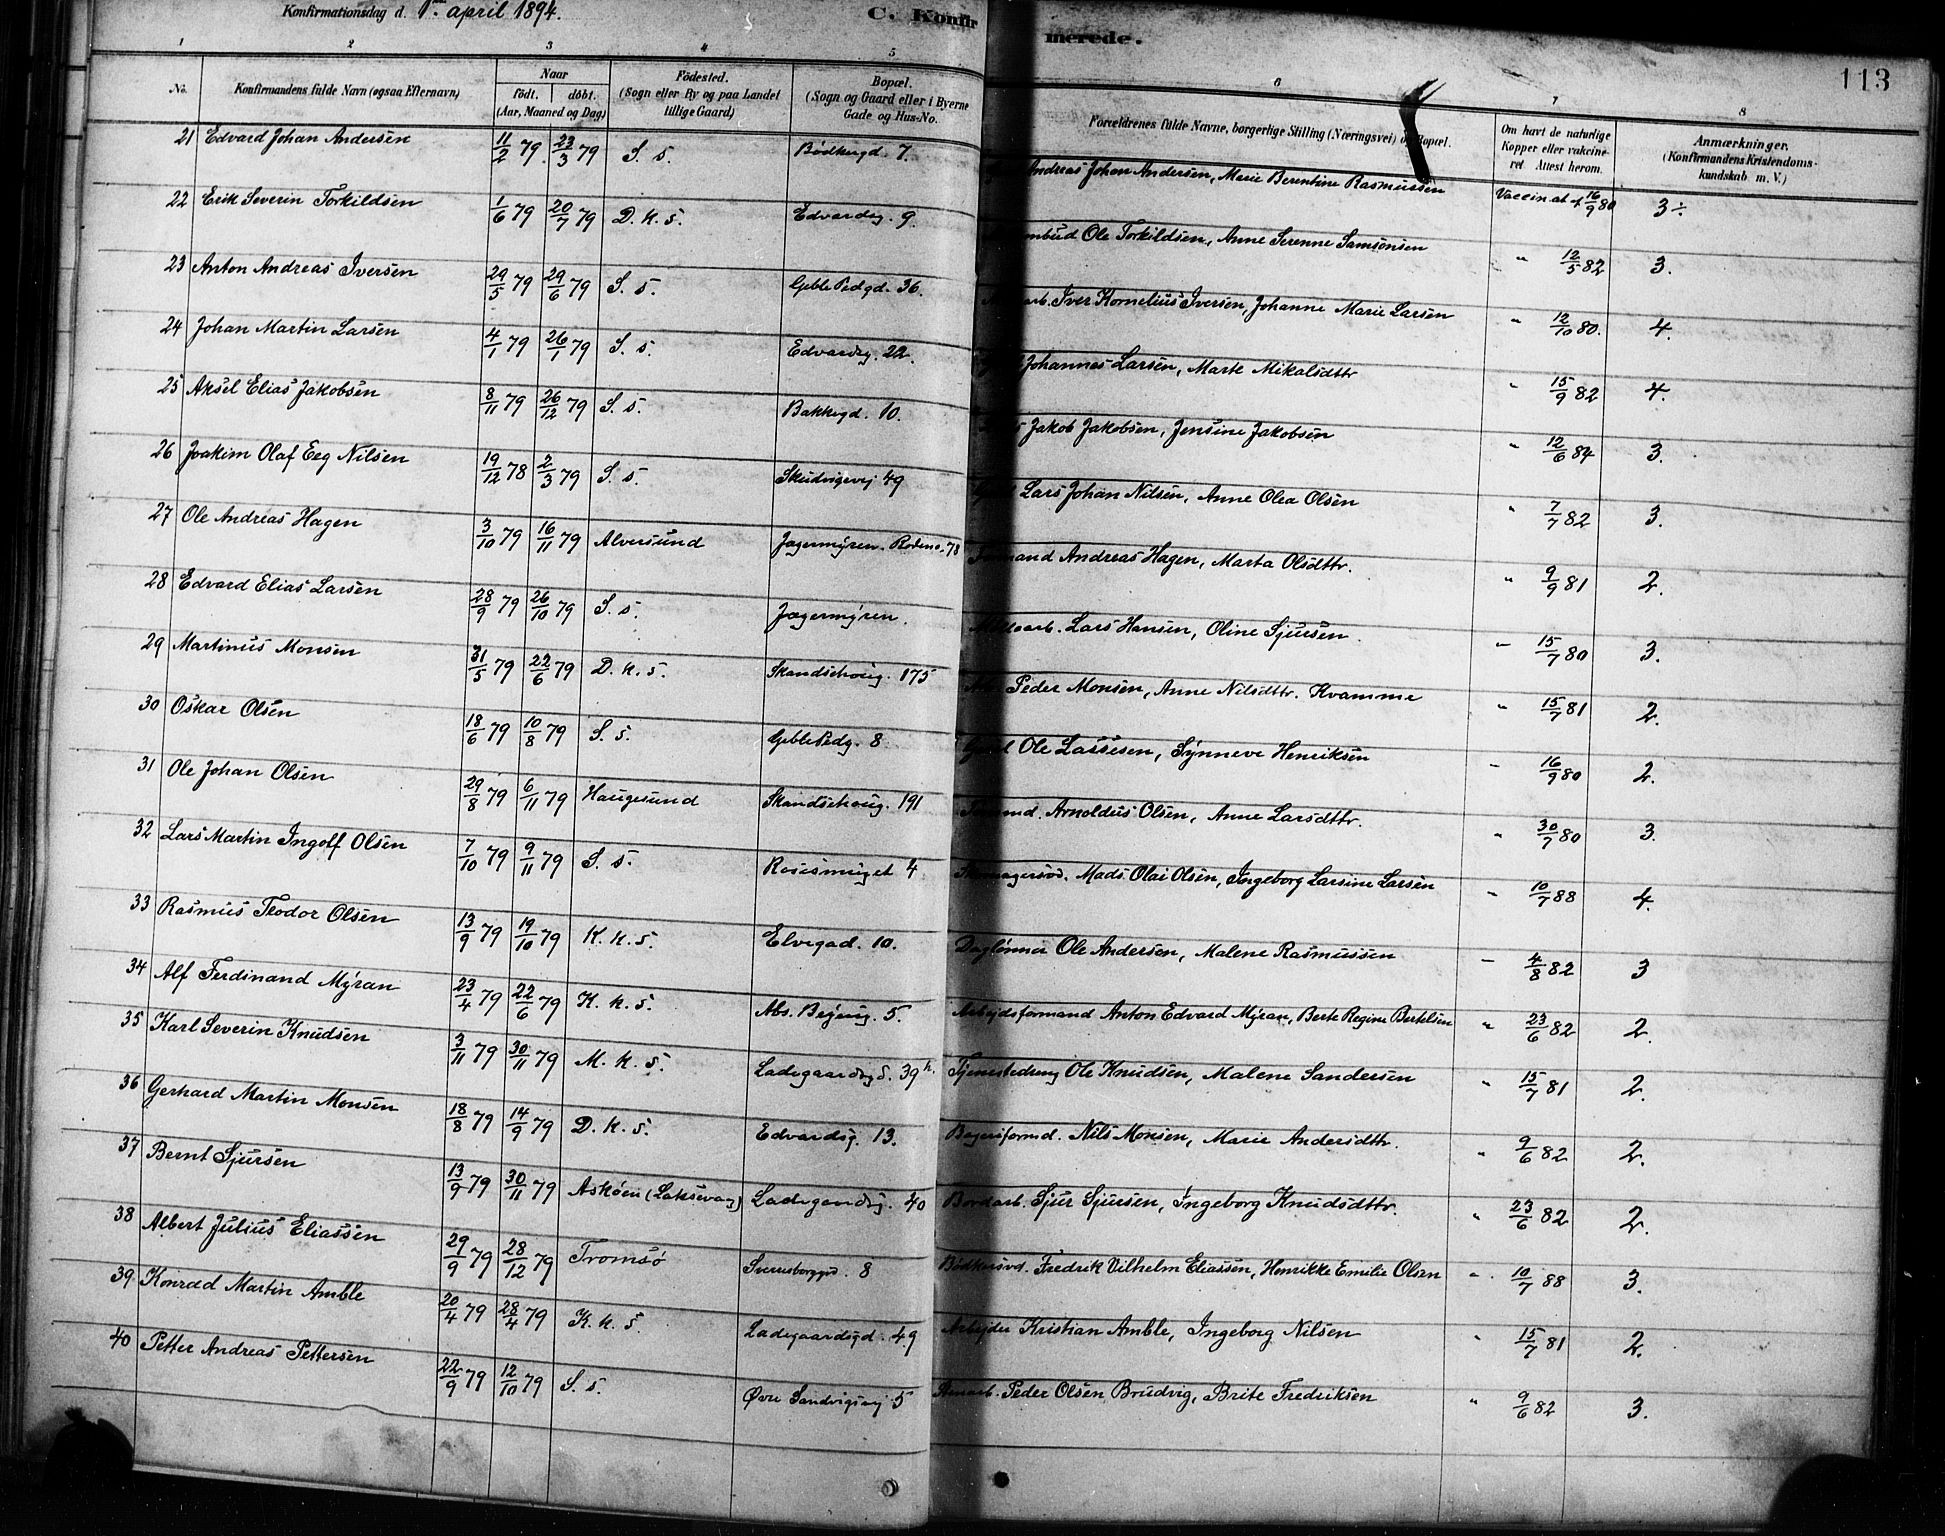 Konfirmationsdag d. 1ste april 1894.
C. Konfirmerede.
113
1 2 3 4 5 6 7 8
No. Konfirmandens fulde Navn (ogsaa Efternavn) Naar födt. döbt. (Aar, Maaned og Dag) Födested. (Sogn eller By og paa Landet tillige Gaard) Bopæl. (Sogn og Gaard eller i Byerne Gade og Hus-No. Forældrenes fulde Navne, borgerlige Stilling (Næringsvei) og Bopæl. Om havt de naturlige Kopper eller vakcineret. Attest herom. Anmærkninger. (Konfirmandens Kristendomskundskab m. V.)
21 Edvard Johan Andersen 11/2 79 23/3 79 S. s. Bödkergd. 7. Andreas Johan Andersen, Marie Berentine Rasmussen Vaccin.at. 16/9 80 3÷
22 Erik Severin Torkildsen 1/6 79 20/7 79 D. k. s. Edvardsg. 9. Ole Torkildsen, Anne Serenne Samsonsen " 12/5 82 3.
23 Anton Andreas Iversen 29/5 79 29/6 79 S. s. Geble Pedgd. 36. Iver Kornelius Iversen, Johanne Marie Larsen " 12/10 80. 4.
24 Johan Martin Larsen 4/1 79 26/1 79 S. s. Edvardsg. 22. Johannes Larsen, Marte Mikalsdttr " 15/9 82 4.
25 Aksel Elias Jakobsen 8/11 79 26/12 79 S. s. Bakkegd. 10. Jakob Jakobsen, Jensine Jakobsen " 12/6 84 3.
26 Joakim Olaf Eeg Nilsen 19/12 78 2/3 79 S. s. Skudvigsvej 49 Lars Johan Nilsen, Anne Olea Olsen " 7/7 82 3.
27 Ole Andreas Hagen 3/10 79 16/11 79 Alversund Jægermyren. Rodeno. 78 Andreas Hagen, Marta Olsdttr. " 9/9 81 2.
28 Edvard Elias Larsen 28/9 79 26/10 79 S. s. Jægermyren. Lars Hansen, Oline Sjursen. " 15/7 80 3.
29 Martinus Monsen 31/5 79 22/6 79 D. k. s. Skandsehoug. 175 Peder Monsen, Anne Nilsdttr. Kvamme " 15/7 81 2.
30 Oskar Olsen 18/6 79 10/8 79 S. s. Geble Pedg. 8. Ole Lassesen, Synneve Henriksen " 16/9 80 2.
31 Ole Johan Olsen 29/8 79 6/11 79 Haugesund Skandsehoug. 191 Arnoldus Olsen, Anne Larsdttr. " 30/7 80 3.
32 Lars Martin Ingolf Olsen 7/10 79 9/11 79 S. s. Rosesmuget 4 Skomagersvd. Mads Olai Olsen, Ingeborg Larsine Larsen " 10/7 88 4.
33 Rasmus Teodor Olsen 13/9 79 19/10 79 K. k. s. Elvegad. 10. Daglönner Ole Andersen, Malene Rasmussen " 4/8 82 3
34 Alf Ferdinand Myran 23/4 79 22/6 79 K. k. s. Abs. Beyerg. 5. Arbejdsformand Anton Edvard Myran, Berte Regine Bertelsen " 23/6 82 2.
35 Karl Severin Knudsen 3/11 79 30/11 79 M. k. s. Ladegaardsgd. 39 h. Tjenestedreng Ole Knudsen, Malene Sandersen " 15/7 81 2.
36 Gerhard Martin Monsen 18/8 79 14/9 79 D. k. s. Edvardsg. 13. Bagersformd. Nils Monsen, Marie Andersdttr. " 9/6 82 2.
37 Bernt Sjursen 13/9 79 30/11 79 Asköen (Laksevaag) Ladegaardsg. 40 Bordarb. Sjur Sjursen, Ingeborg Knudsdttr. " 23/6 82 2.
38 Albert Julius Eliassen 29/9 79 28/12 79 Tromsö Sverresborggd. 8 Bödkersvd. Fredrik Vilhelm Eliassen, Henrikke Emilie Olsen " 10/7 88 3.
39 Konrad Martin Amble 20/4 79 28/4 79 K. k. s. Ladegaardsgd. 49 Arbejder Kristian Amble, Ingeborg Nilsen " 15/7 81 2.
40 Petter Andreas Pettersen 22/9 79 12/10 79 S. s. Øvre Sandvigsvej 5 Peder Olsen Brudvig, Brite Fredriksen " 9/6 82 3.